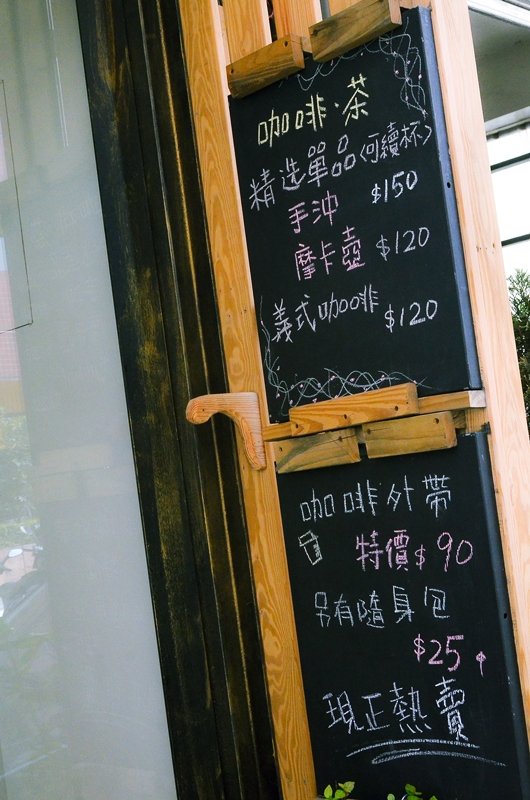 咖啡·茶
精選單品〈可續杯〉
手沖 $150
摩卡壺 $120
義式咖啡 $120
咖啡外帶
特價$90
另有隨身包
$25
現正熱賣